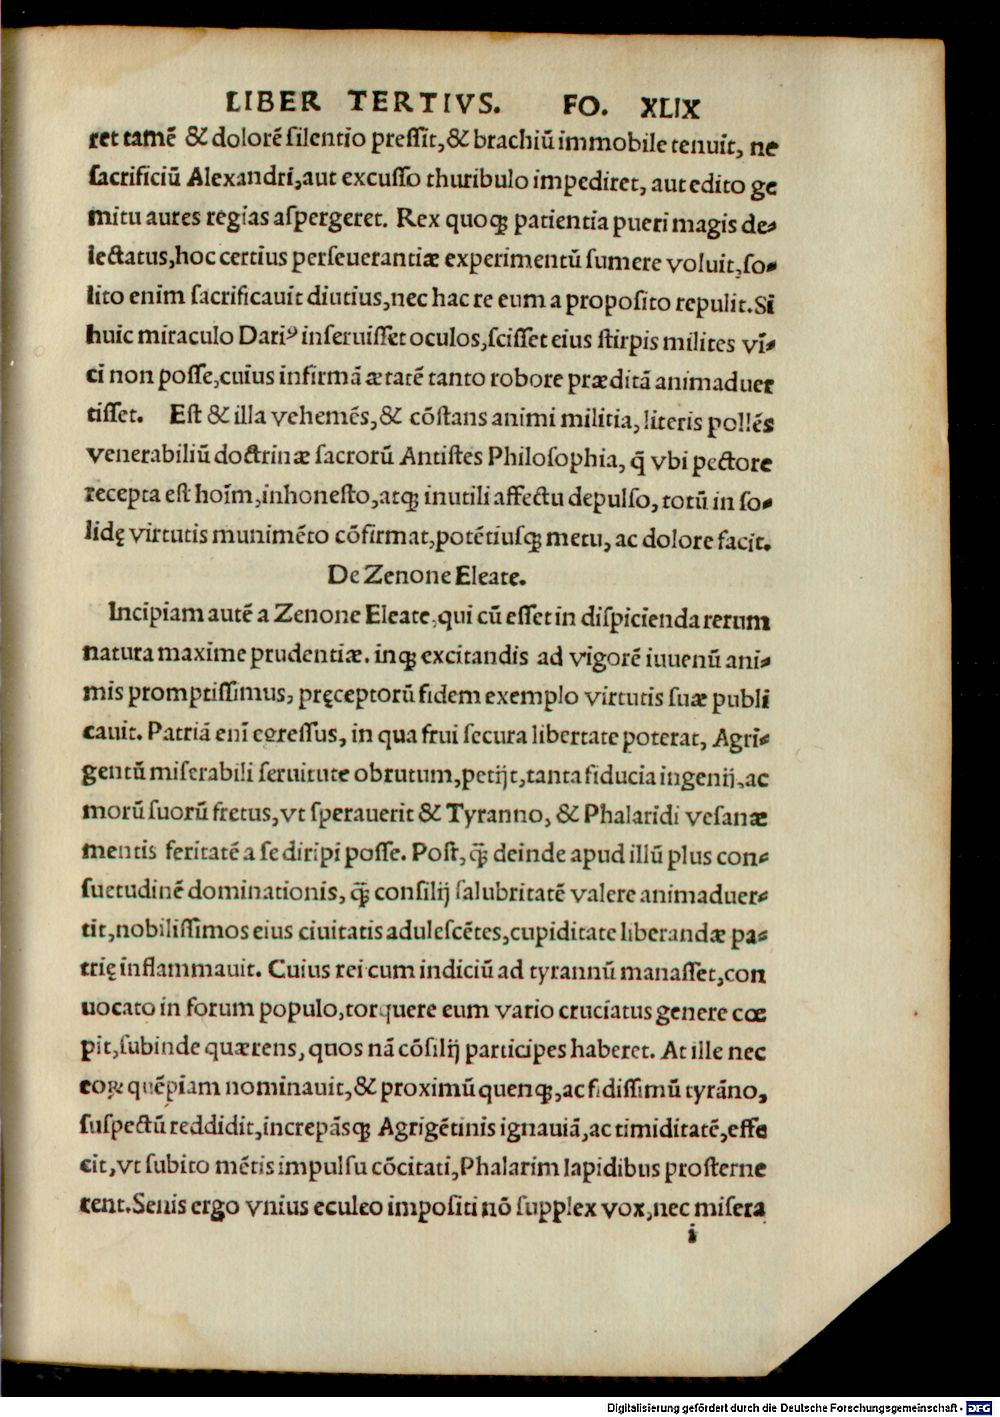 LIBER TERTIVS. FO. XLIX
ret tamē & dolorē ſilentio preſſit,& brachiū immobile tenuit, ne
ſacrificiū Alexandri,aut excuſſo thuribulo impediret, aut edito ge
mitu aures regias aſpergeret. Rex quoqꝫ patientia pueri magis de⸗
lectatus,hoc certius perſeuerantiæ experimentū ſumere voluit,ſo⸗
lito enim ſacrificauit diutius,nec hac re eum a propoſito repulit.Si
huic miraculo Dariꝰ inſeruiſſet oculos,ſciſſet eius ſtirpis milites vī⸗
ci non poſſe,cuius infirmā ætatē tanto robore præditā animaduer
tiſſet. Eſt & illa vehemēs,& cōſtans animi militia,literis pollēs
venerabiliū doctrinæ ſacrorū Antiſtes Philoſophia, q̄ vbi pectore
recepta eſt hoīm,inhoneſto,atqꝫ inutili affectu depulſo,totū in ſo⸗
lidę virtutis munimēto cōfirmat,potētiuſqꝫ metu, ac dolore facit.
De Zenone Eleate.
Incipiam autē a Zenone Eleate,qui cū eſſet in diſpicienda rerum
natura maxime prudentiæ. inqꝫ excitandis ad vigorē iuuenū ani⸗
mis promptiſſimus, pręceptorū fidem exemplo virtutis ſuæ publi
cauit. Patriā enī egreſſus, in qua frui ſecura libertate poterat, Agri⸗
gentū miſerabili ſeruitute obrutum,petijt,tanta fiducia ingenij,ac
morū ſuorū fretus,vt ſperauerit & Tyranno, & Phalaridi veſanæ
mentis feritatē a ſe diripi poſſe. Poſt,q̄ꝫ deinde apud illū plus con⸗
ſuetudinē dominationis, q̄ꝫ conſilij ſalubritatē valere animaduer⸗
tit,nobiliſſimos eius ciuitatis aduleſcētes,cupiditate liberandæ pa⸗
trię inflammauit. Cuius rei cum indiciū ad tyrannū manaſſet,con
uocato in forum populo,torquere eum vario cruciatus genere cœ
pit,ſubinde quærens, quos nā cōſilij participes haberet. At ille nec
eoꝝ quēpiam nominauit,& proximū quenqꝫ,ac fidiſſimū tyrāno,
ſuſpectū reddidit,increpāſqꝫ Agrigētinis ignauiā,ac timiditatē,effe
cit,vt ſubito mētis impulſu cōcitati,Phalarim lapidibus proſterne
rent.Senis ergo vnius eculeo impoſiti nō ſupplex vox,nec miſera
i
Digitalisierung gefördert durch die Deutsche Forschungsgemeinschaft - DFG